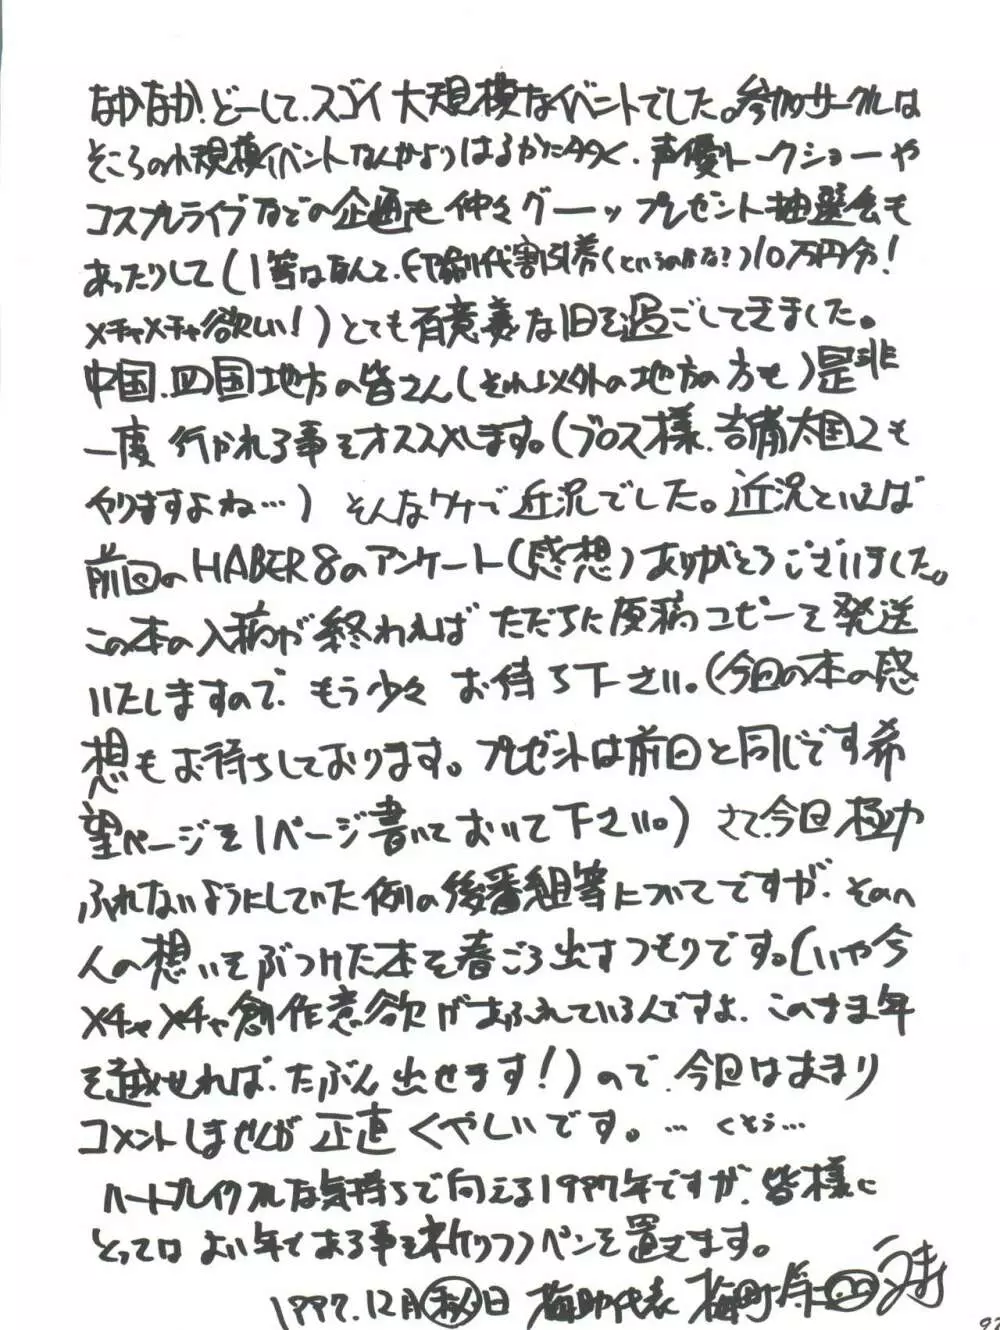 なかなか、どーして、スゴイ大規模なイベントでした。参加サークルは
そこらの小規模イベントなんかよりはるかに多く、声優トークショーや
コスプレライブなどの企画も仲々グーッ プレゼント抽選会も
あったりして(1等はなんと、印刷代割引券(というのかな?)10万円分!
メチャメチャ欲しい!)とても有意義な1日を過ごしてきました。
中国、四国地方の皆さん(それ以外の地方の方も)是非
一度 行かれる事をオススメします。(ブロス様、吉備太国2も
やりますよね…) そんなワケで近況でした。近況といえば
前回のHABER8のアンケート(感想)ありがとうございました。
この本の入稿が終わればただちに原稿コピーを発送
いたしますので、もう少々 お待ち下さい。(今回の本の感
想もお待ちしております。プレゼントは前回と同じです希
望ページを1ページ書いておいて下さい。) さて、今回 極力
ふれないようにしていた例の後番組等についてですが、その
人の想いをぶつけた本を春ごろ出すつもりです。(いや今
メチャメチャ創作意欲があふれているんですよ、このまま年
を越せれば、たぶん出せます!)ので、今回はあまり
コメントしませんが 正直 くやしいです。… くそぅ…
ハートブレイクフルな気持ちで向える1997年ですが、皆様に
とっては よい年である事を祈りつつペンを置きます。
1997.12月㊙日 梅助代表 梅町
92